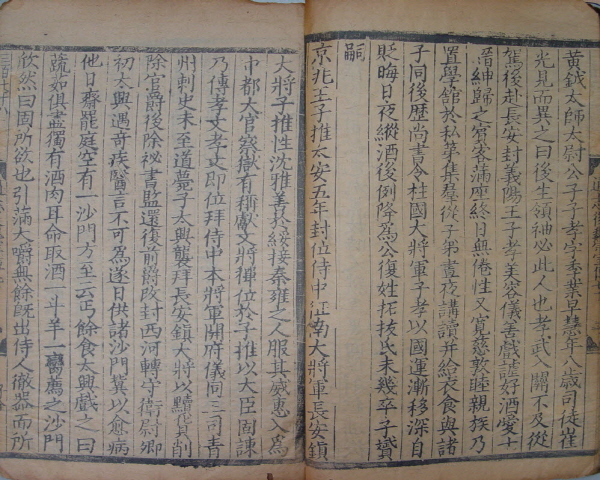 黃鉞太師太尉公子子孝字季業早慧年八歲司徒崔
光見而異之曰後生領袖必此人也孝武入關不及從
駕後赴長安封義陽王子孝美容儀善戲謔好酒愛士
縉紳歸之賓客滿座終日無倦性又寬慈敦睦親族乃
置學館於私第集羣從子弟晝夜講讀并給衣食與諸
子同後歷尚書令柱國大將軍子孝以國運漸移深自
貶晦日夜縱酒後例降為公復姓拓拔氏未幾卒子贇
嗣
京兆王子推太安五年封位侍中征南大將軍長安鎮
大將子推性沈雅善於綏接秦雍之人服其威惠入為
中都大官察獄有稱獻文將禪位於子推以大臣固諫
乃傳孝文孝文即位拜侍中本將軍開府儀同三司青
州刺史未至道薨子太興襲拜長安鎮大將以黷貨削
除官爵後除祕書監還復前爵改封西河轉守衛尉卿
初太興遇奇疾醫言不可為遂日供諸沙門冀以愈病
他日齋罷庭空有一沙門方至云丐餘食太興戲之曰
蔬茹俱盡獨有酒肉耳命取酒一斗羊一臠薦之沙門
欣然曰固所欲也引滿大嚼無餘旣出侍人徹器而所